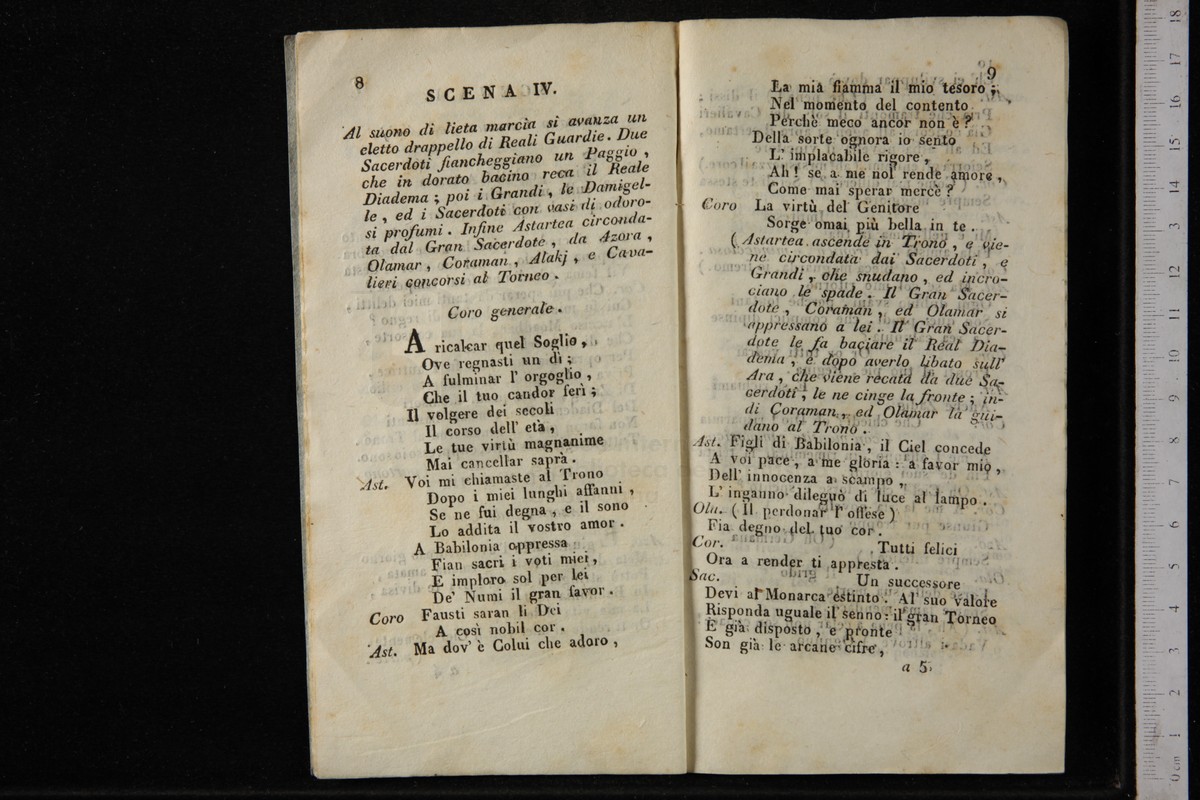 8
SCENA IV.
Al suono di lieta marcia si avanza un
eletto drappello di Reali Guardie. Due
Sacerdoti fiancheggiano un Paggio,
che in dorato bacino reca il Reale
Diadema; poi i Grandi, le Damigel-
le, ed i Sacerdoti con vasi di odoro-
si profumi. Infine Astartea circonda-
ta dal Gran Sacerdote, da Azora,
Olamar, Coraman, Alakj, e Cava-
lieri concorsi al Torneo.
Coro generale.
A ricalcar quel Soglio,
Ove regnasti un dì;
A fulminar l' orgoglio,
Che il tuo candor ferì;
Il volgere dei secoli
Il corso dell' età,
Le tue virtù magnanime
Mai cancellar saprà.
Ast. Voi mi chiamaste al Trono
Dopo i miei lunghi affanni,
Se ne fui degna, e il sono
Lo addita il vostro amor.
A Babilonia oppressa
Fian sacri i voti miei,
E imploro sol per lei
De' Numi il gran favor.
Coro Fausti saran li Dei
A così nobil cor.
Ast. Ma dov' è Colui che adoro,
9
La mia fiamma il mio tesoro;
Nel momento del contento
Perchè meco ancor non è?
Della sorte ognora io sento
L' implacabile rigore,
Ah! se a me nol rende amore,
Come mai sperar mercè?
Coro La virtù del Genitore
Sorge omai più bella in te.
(Astartea ascende in Trono, e vie-
ne circondata dai Sacerdoti, e
Grandi, che snudano, ed incro-
ciano le spade. Il Gran Sacer-
dote, Coraman, ed Olamar si
appressano a lei. Il Gran Sacer-
dote le fa baciare il Real Dia-
dema, e dopo averlo libato sull'
Ara, che viene recata da due Sa-
cerdoti, le ne cinge la fronte; in-
di Coraman, ed Olamar la gui-
dano al Trono.
Ast. Figli di Babilonia, il Ciel concede
A voi pace, a me gloria: a favor mio,
Dell' innocenza a scampo,
L' inganno dileguò di luce al lampo.
Ola. (Il perdonar l' offese)
Fia degno del tuo cor.
Cor. Tutti felici
Ora a render ti appresta.
Sac. Un successore
Devi al Monarca estinto. Al suo valore
Risponda uguale il senno: il gran Torneo
E già disposto, e pronte
Son già le arcane cifre,
a 5